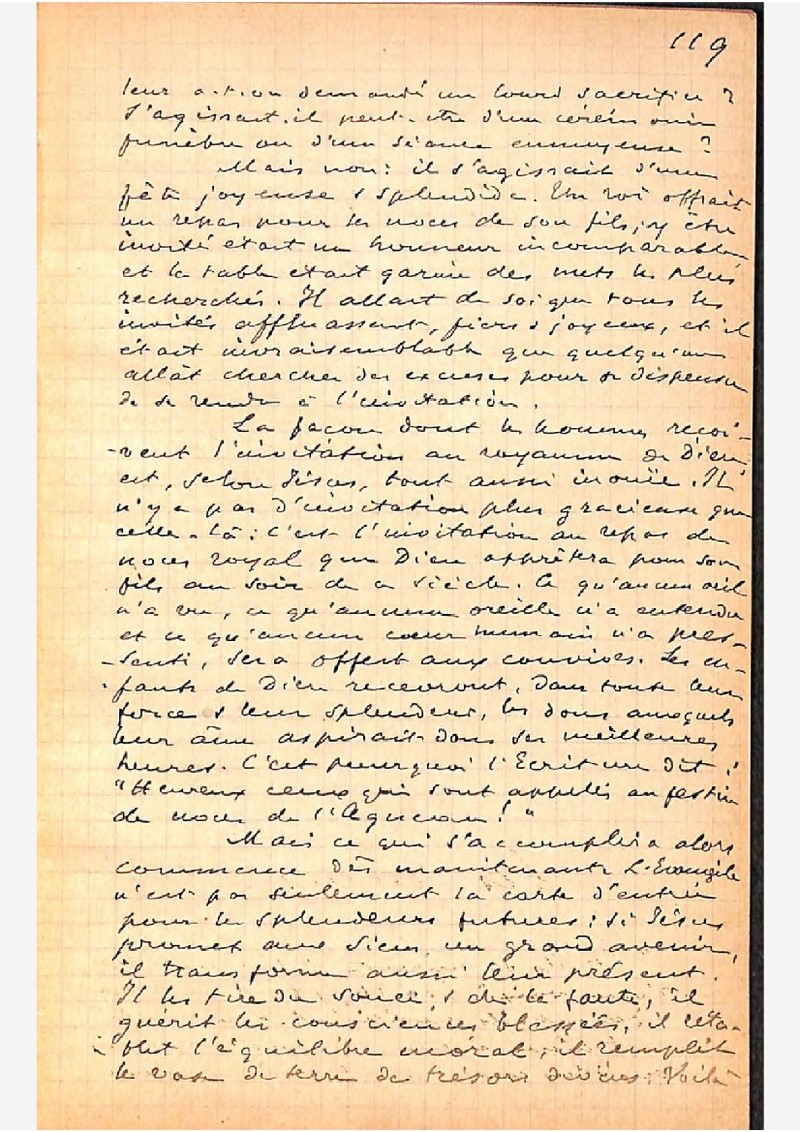 119
leur action demandé un lourd sacrifice ?
S'agissait-il peut-être d'une cérémonie
funèbre ou d'une séance ennuyeuse ?
Mais non : il s'agissait d'une
fête joyeuse & splendide. Un roi offrait
un repas pour les noces de son fils, y être
invité était un honneur incomparable,
et la table était garnie des mets les plus
recherchés. Il allait de soi que tous les
invités affluassent, fiers & joyeux, et il
était invraisemblable que quelqu'un
allât chercher des excuses pour se dispenser
de se rendre à l'invitation.
La façon dont les hommes reçoi-
-vent l'invitation au royaume de Dieu
est, selon Jésus, tout aussi inouïe. Il
n'y a pas d'invitation plus gracieuse que
celle-là : c'est l'invitation au repas de
noces royal que Dieu apprêtera pour son
fils au soir de ce siècle. Ce qu'aucun œil
n'a vu, ce qu'aucune oreille n'a entendu
et ce qu'aucun cœur humain n'a pres-
-senti, sera offert aux convives. Les en-
-fants de Dieu recevront, dans toute leur
force & leur splendeur, les dons auxquels
leur âme aspirait dans ses meilleures
heures. C'est pourquoi l'Ecriture dit :
"Heureux ceux qui sont appelés au festin
de noces de l'Agneau !"
Mais ce qui s'accomplira alors
commence dès maintenant. L'Evangile
n'est pas seulement la carte d'entrée
pour les splendeurs futures ; si Jésus
promet aux siens un grand avenir,
il transforme aussi leur présent.
Il les tire du souci & de la faute, il
guérit les consciences blessées, il réta-
-blit l'équilibre moral, il remplit
le vase de terre de trésors divins. Voilà